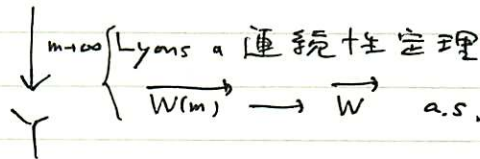 m→∞ { Lyons の 連続性定理
↓ { $\overrightarrow{W(m)}$ ⟶ $\overrightarrow{W}$ a.s.
Y